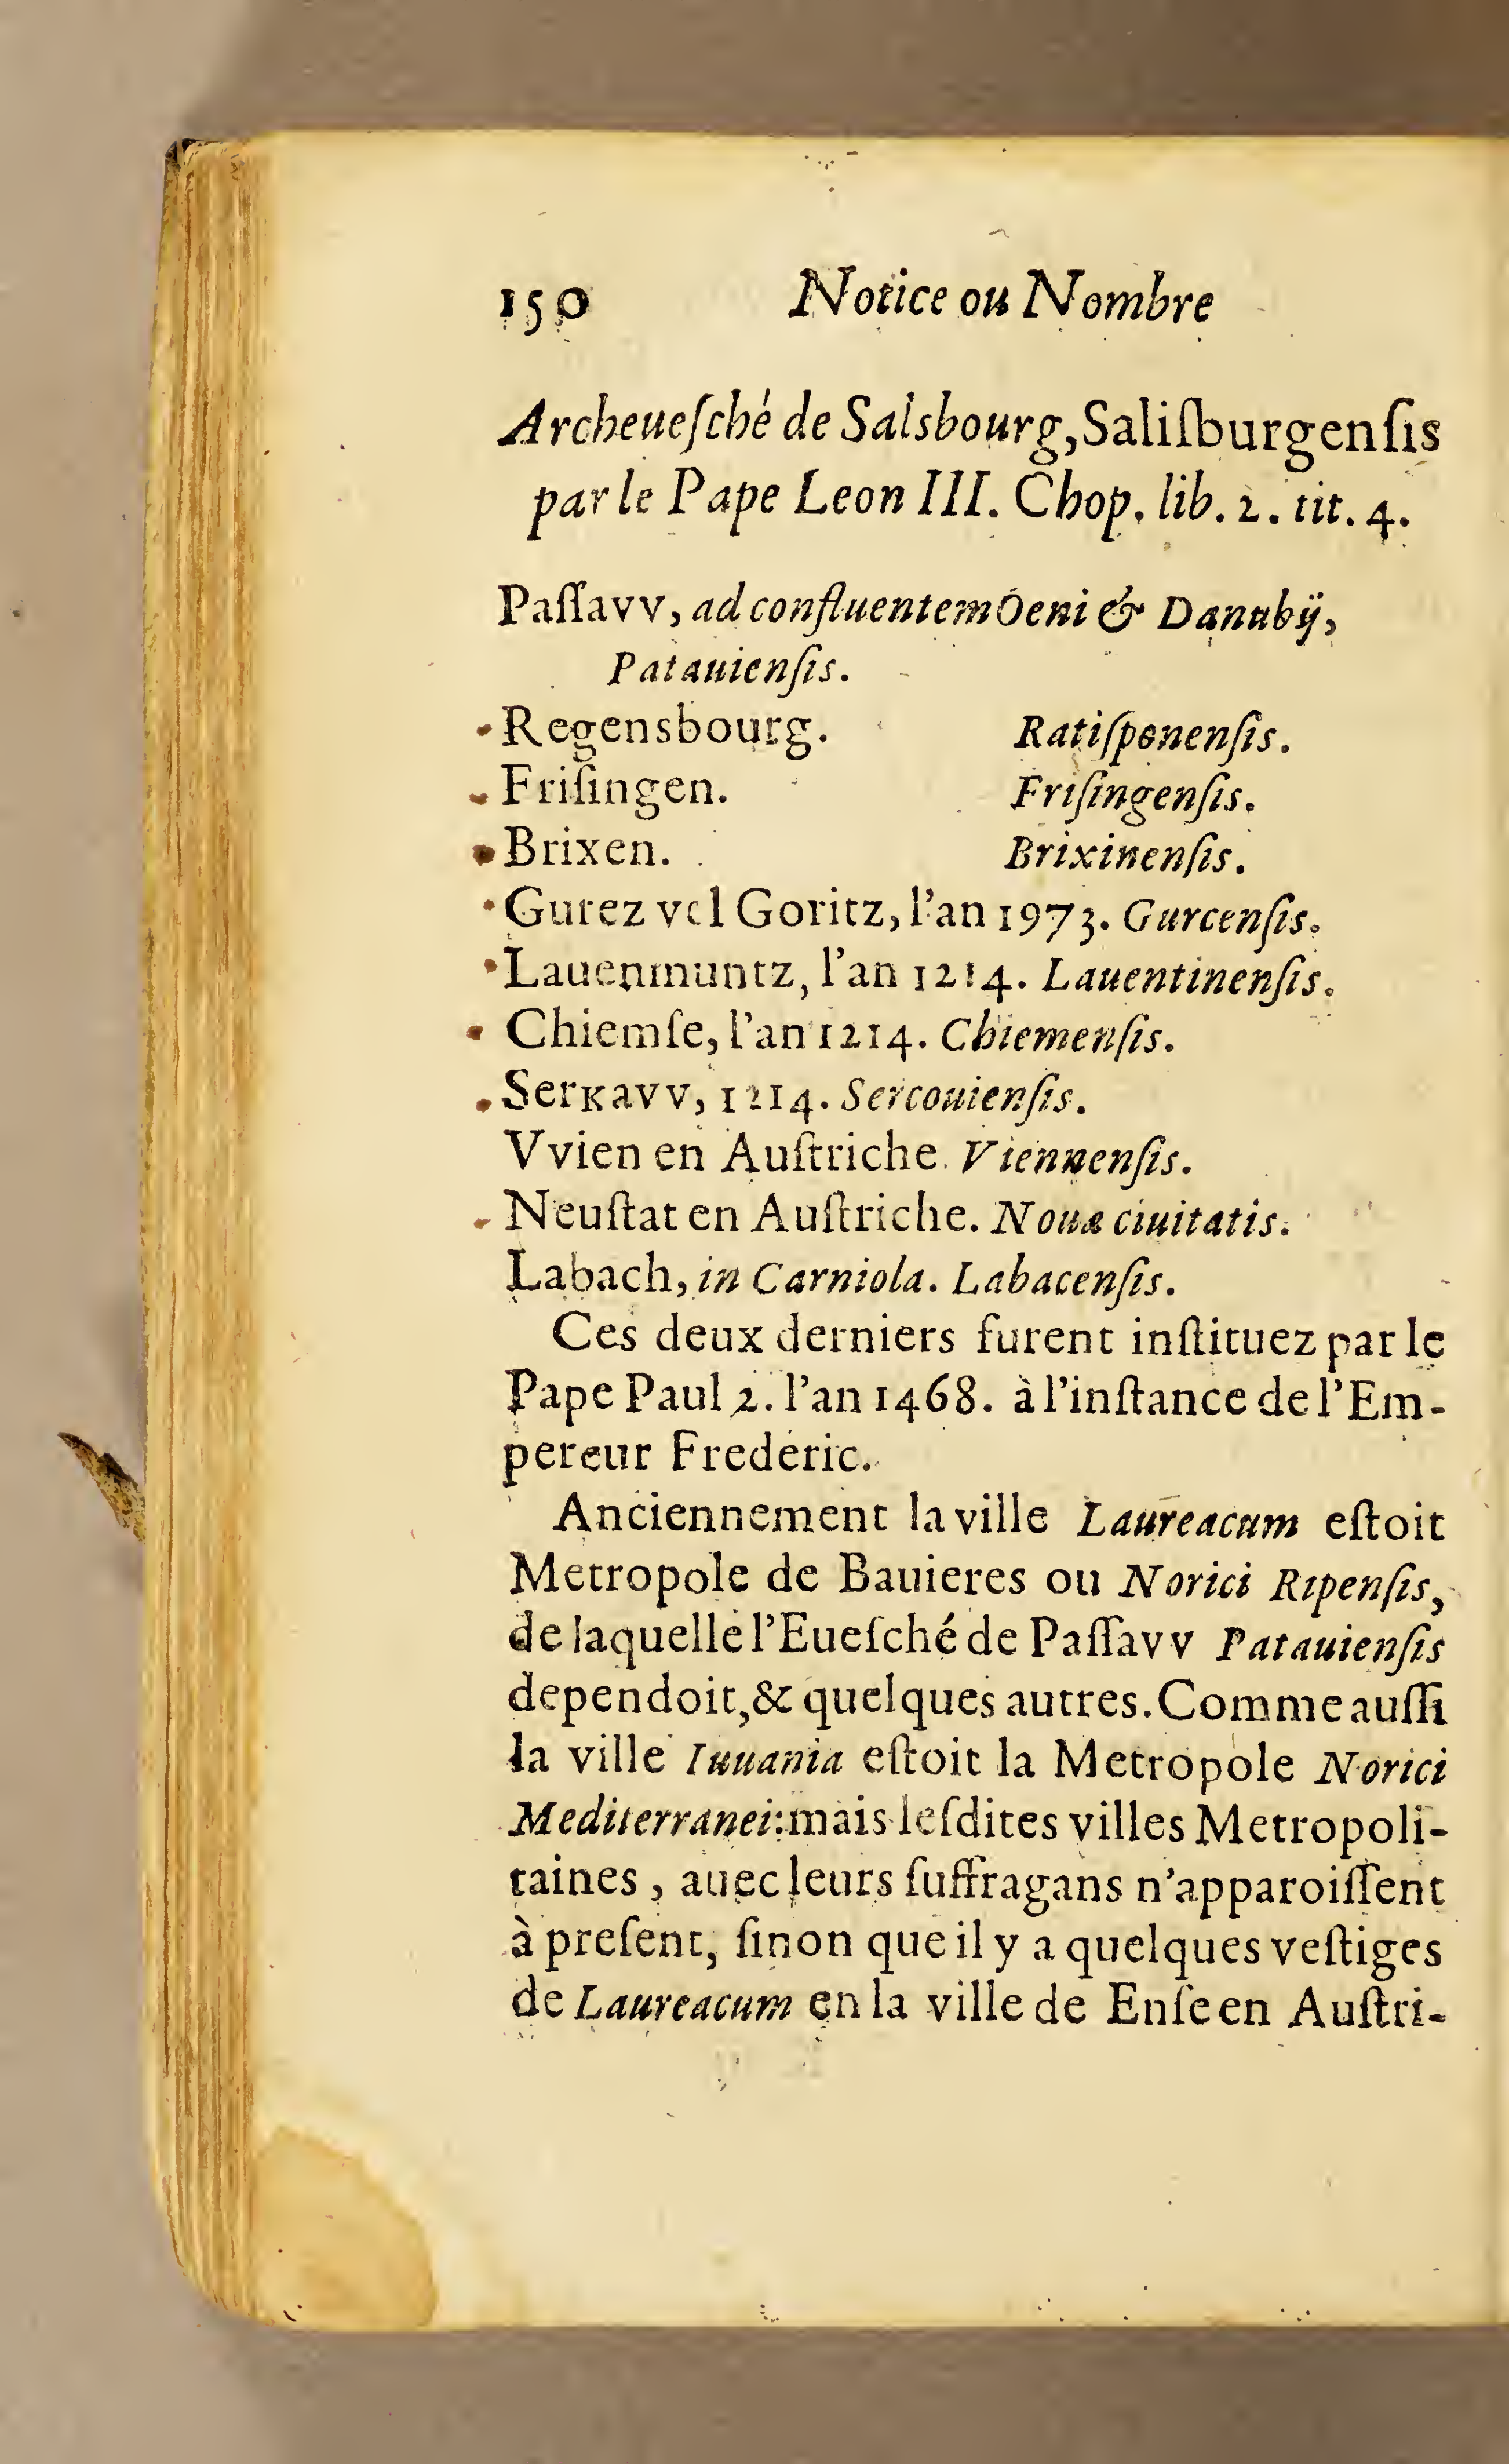 150 Notice ou Nombre
Archeueſché de Salsbourg, Saliſburgenſis
par le Pape Leon III. Chop. lib. 2. tit. 4.
Paſſavv, ad confluentem Oeni & Danubÿ,
Patauienſis.
Regensbourg. Ratiſponenſis.
Friſingen. Friſingenſis.
Brixen. Brixinenſis.
Gurez vel Goritz, l'an 1973. Gurcenſis.
Lauenmuntz, l'an 1214. Lauentinenſis.
Chiemſe, l'an 1214. Chiemenſis.
Serkavv, 1214. Sercouienſis.
Vvien en Auſtriche. Viennenſis.
Neuſtat en Auſtriche. Nouæ ciuitatis.
Labach, in Carniola. Labacenſis.
Ces deux derniers furent inſtituez par le
Pape Paul 2. l'an 1468. à l'inſtance de l'Em-
pereur Frederic.
Anciennement la ville Laureacum eſtoit
Metropole de Bauieres ou Norici Ripenſis,
de laquelle l'Eueſché de Paſſavv Patauienſis
dependoit, & quelques autres. Comme auſſi
la ville Iuuania eſtoit la Metropole Norici
Mediterranei: mais leſdites villes Metropoli-
taines, auec leurs ſuffragans n'apparoiſſent
à preſent, ſinon que il y a quelques veſtiges
de Laureacum en la ville de Enſe en Auſtri-